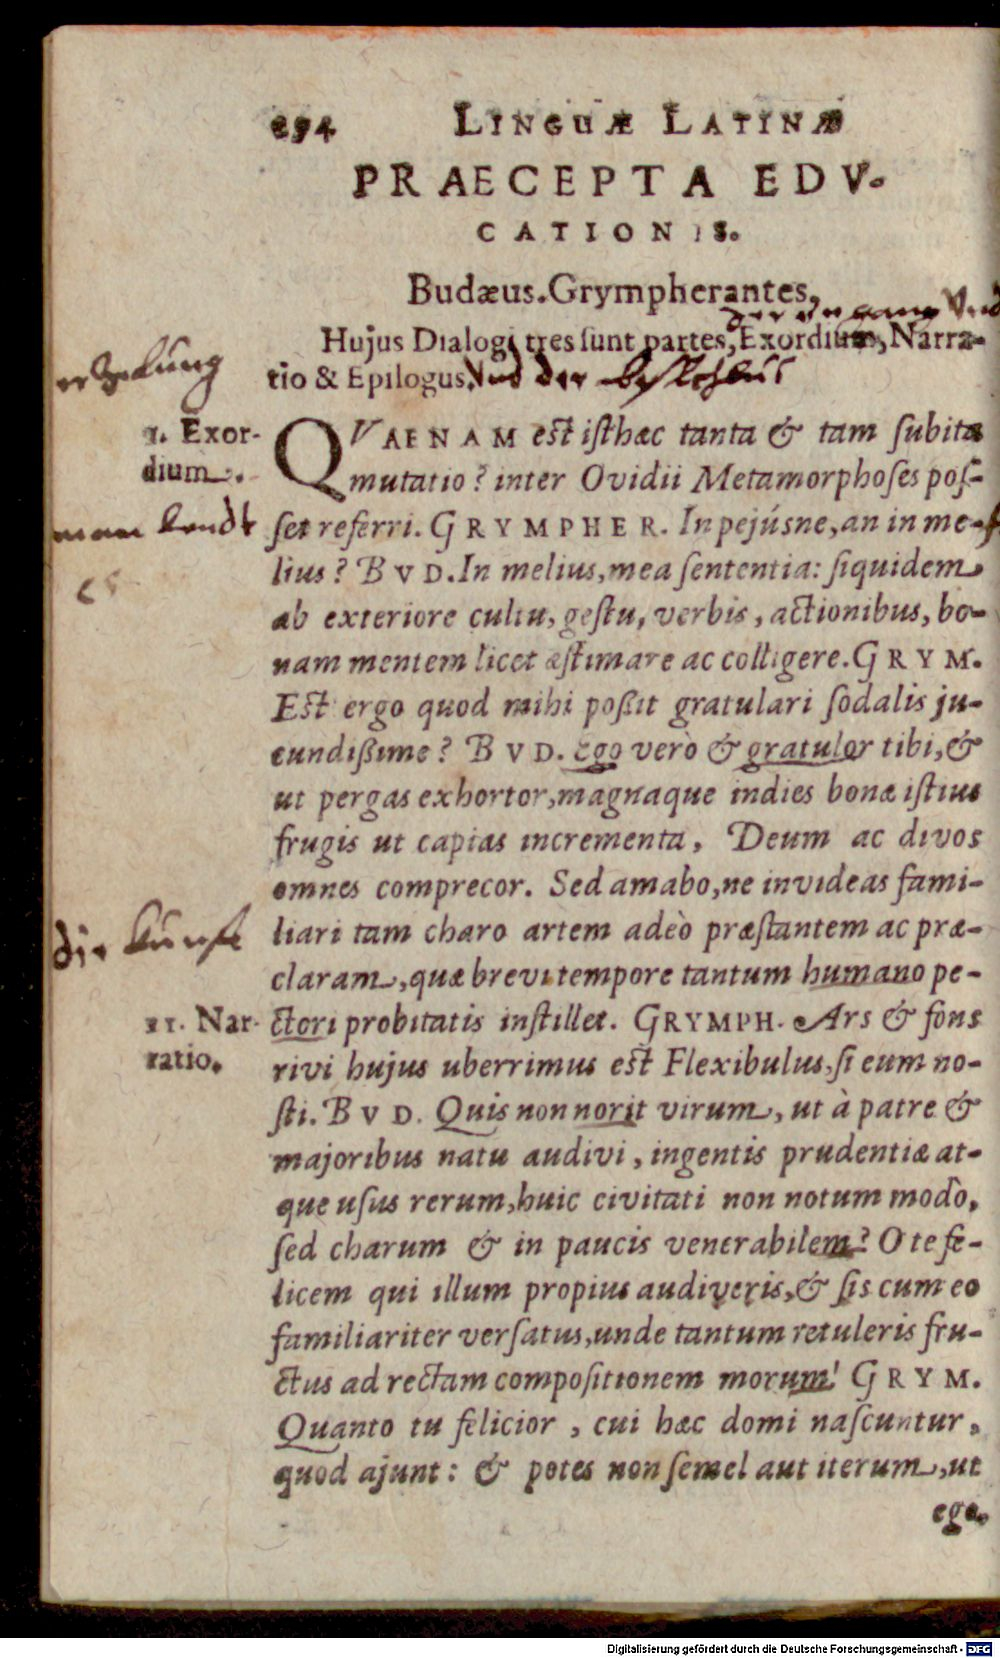 294 LINGUÆ LATINÆ
PRAECEPTA EDV-
CATIONIS.
Budæus. Grympherantes,
der vnd
Hujus Dialogi tres sunt partes, Exordium, Narra-
erzelung
tio & Epilogus. vnd der beschlus
1. Exor-
dium.
QVAENAM est isthæc tanta & tam subita
mutatio? inter Ovidii Metamorphoses pos-
man kendt
es
set referri. GRYMPHER. In pejúsne, an in me-
lius? BVD. In melius, mea sententia: siquidem
ab exteriore cultu, gestu, verbis, actionibus, bo-
nam mentem licet æstimare ac colligere. GRYM.
Est ergo quod mihi poßit gratulari sodalis ju-
cundißime? BVD. Ego verò & gratulor tibi, &
ut pergas exhortor, magnaque indies bonæ istius
frugis ut capias incrementa, Deum ac divos
omnes comprecor. Sed amabo, ne invideas fami-
die kunst
liari tam charo artem adeò præstantem ac præ-
claram, quæ brevi tempore tantum humano pe-
11. Nar-
ratio.
ctori probitatis instillet. GRYMPH. Ars & fons
rivi hujus uberrimus est Flexibulus, si eum no-
sti. BVD. Quis non norit virum, ut à patre &
majoribus natu audivi, ingentis prudentiæ at-
que usus rerum, huic civitati non notum modò,
sed charum & in paucis venerabilem? O te fe-
licem qui illum propius audiveris, & sis cum eo
familiariter versatus, unde tantum retuleris fru-
ctus ad rectam compositionem morum! GRYM.
Quanto tu felicior, cui hæc domi nascuntur,
quod ajunt: & potes non semel aut iterum, ut
ego.
Digitalisierung gefördert durch die Deutsche Forschungsgemeinschaft - DFG